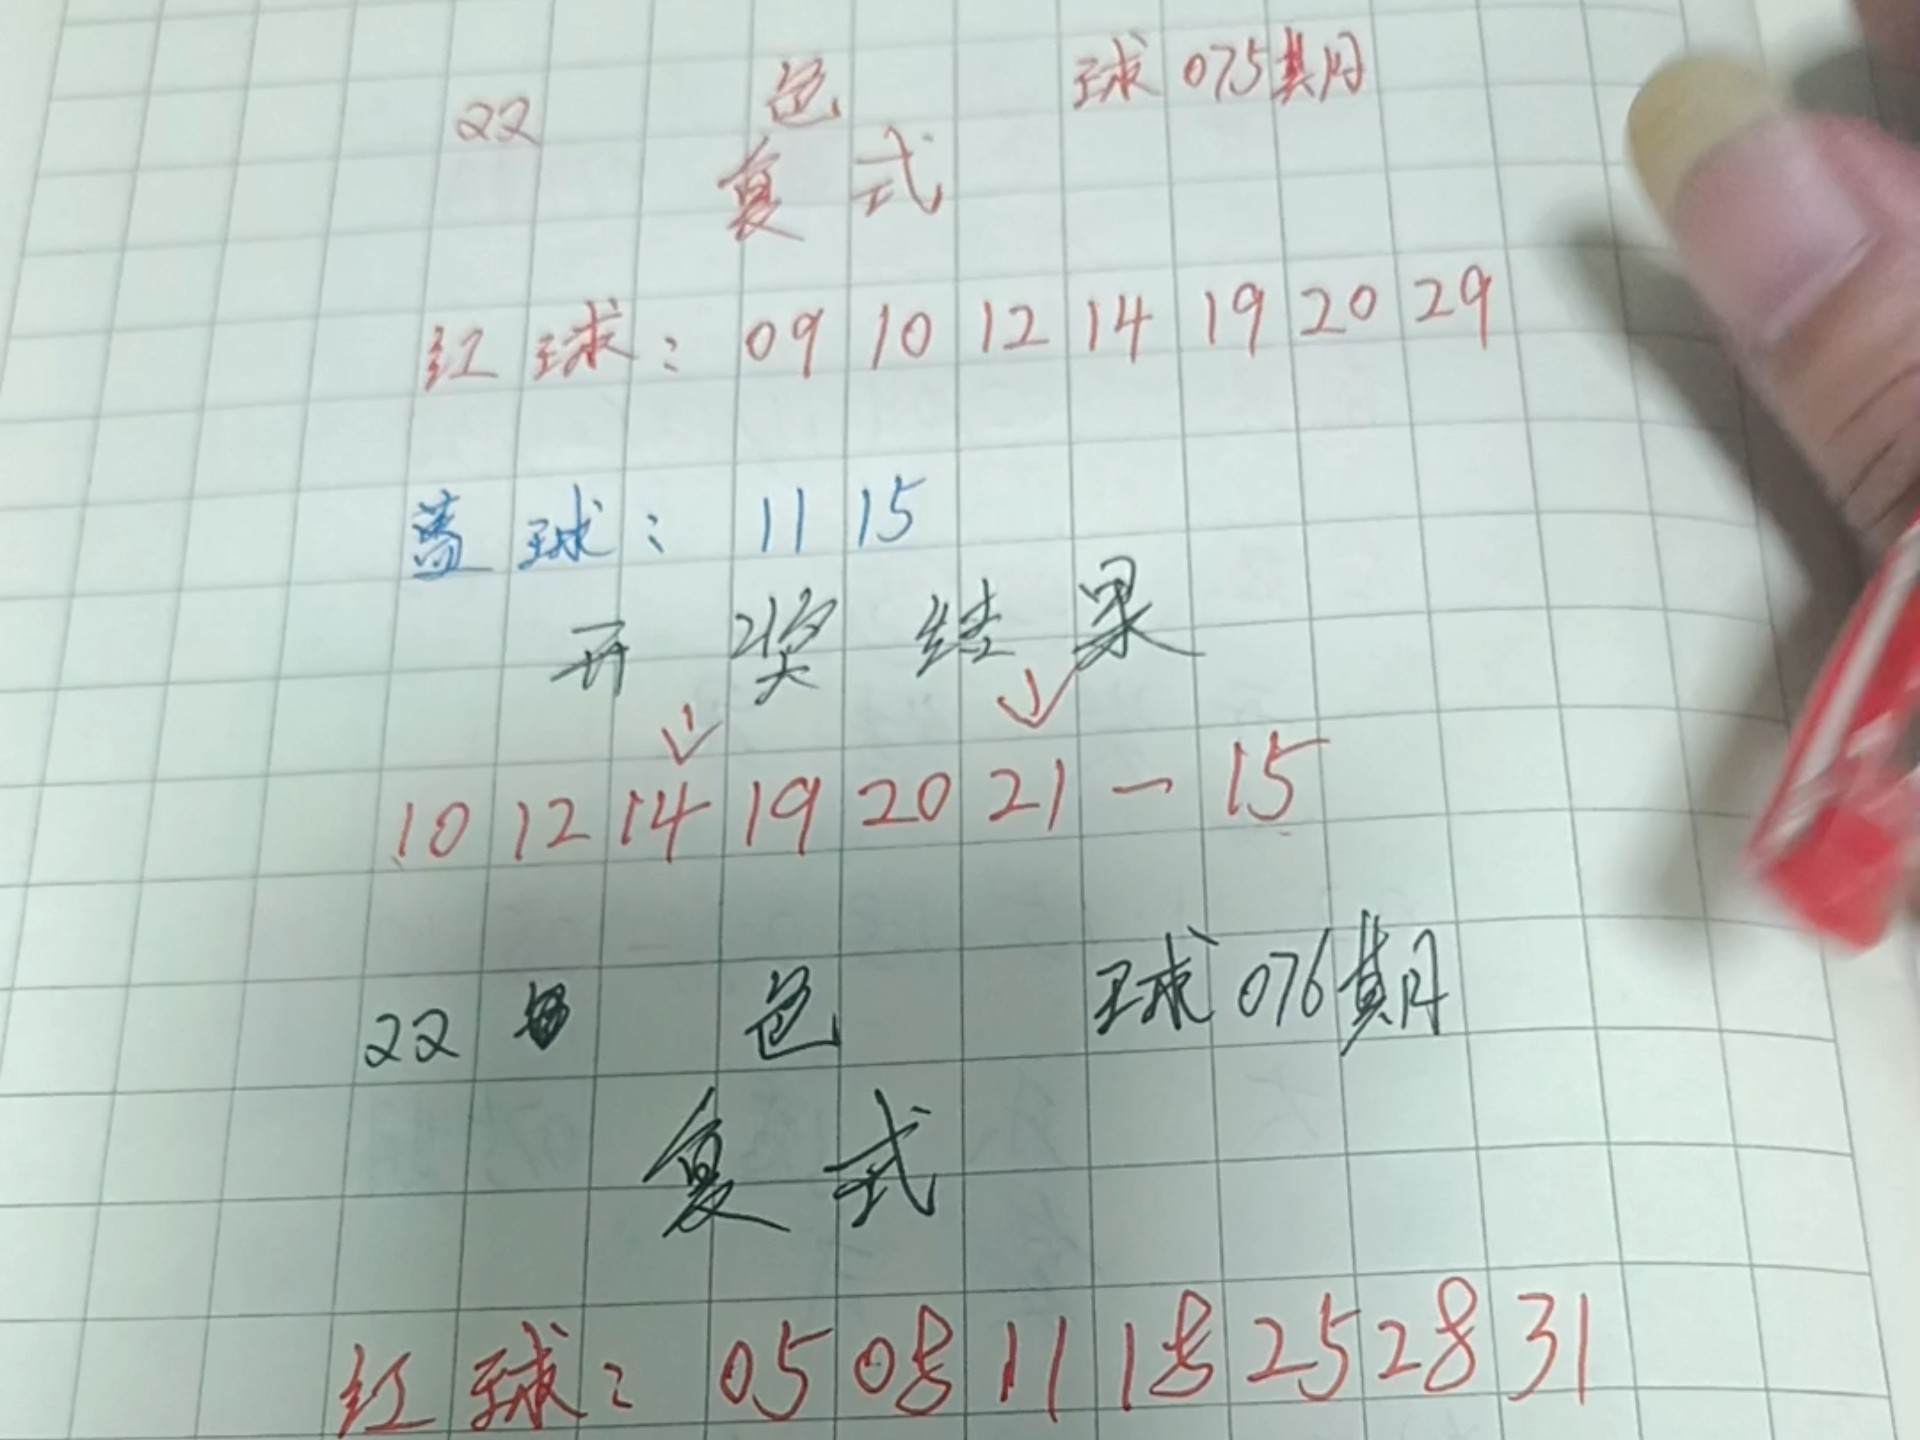 22 色 球 075期
复式
红球: 09 10 12 14 19 20 29
蓝球: 11 15
开奖结果
10 12 14 19 20 21 — 15
22 色 球 076期
复式
红球: 05 08 11 18 25 28 31